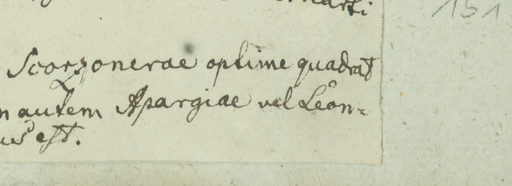 151
Scorzonerae optime quadrat
autem Apargiae vel Leon=
us est.